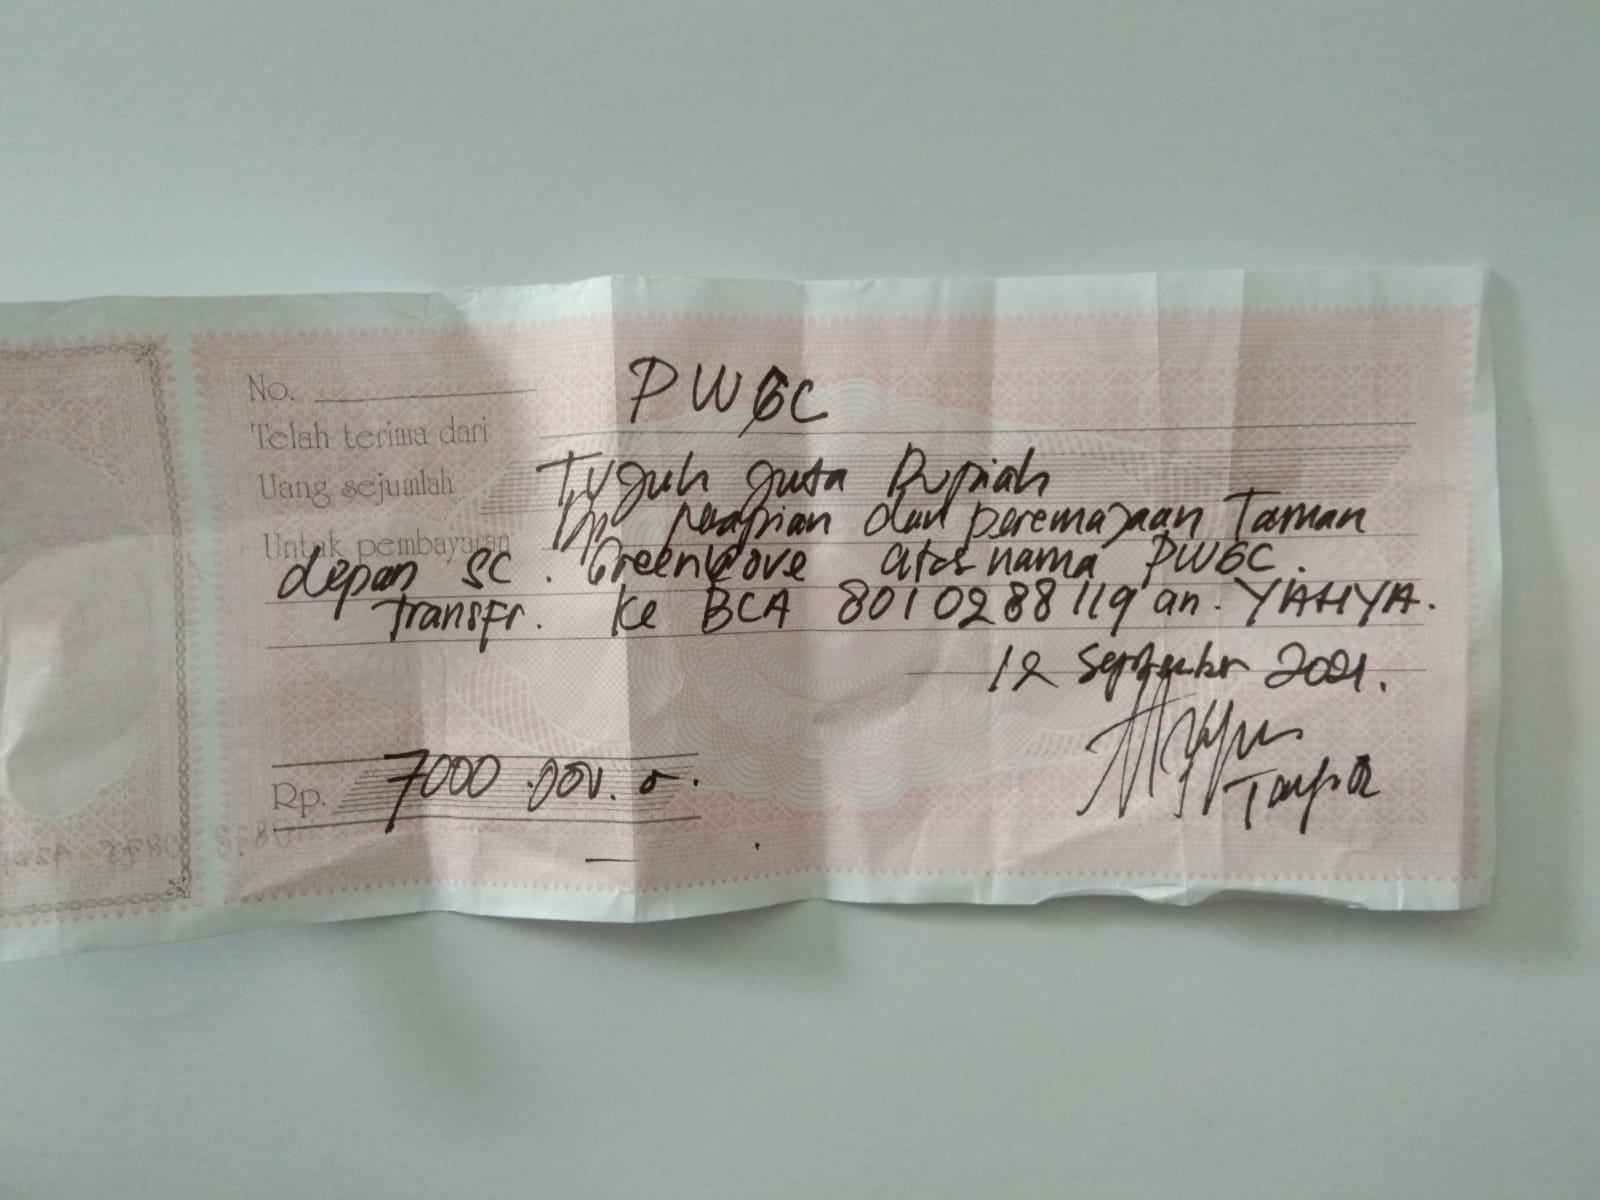 No.
Telah terima dari PWGC
Uang sejumlah Tujuh juta Rupiah
Untuk pembayaran Dp perapian dan peremajaan Taman
depan SC. GreenCove atas nama PWGC.
Transfr. ke BCA 8010288119 an. YAHYA.
12 September 2021.
Rp. 7000.000.